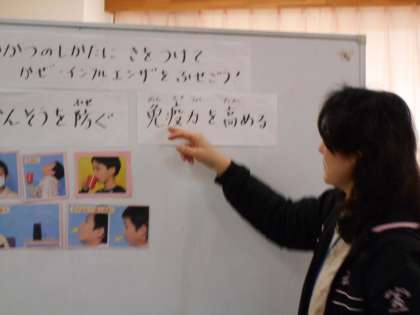 かつのしかたに きをつけて
かぜ・インフルエンザを ふせごう！
んそうを防ぐ
免疫力を高める